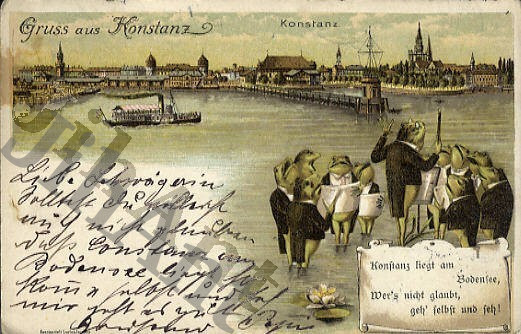 Gruss aus Konstanz
Konstanz
Liebe Schwägerin
Solltest Du
nicht glauben
daß Constanz am
Bodensee liegt
selbst und
mir geht es gut
Konstanz liegt am
Bodensee,
Wer's nicht glaubt,
geh' selbst und seh!